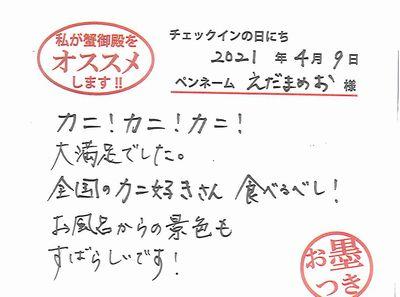 私が蟹御殿を
オススメ
します!!
チェックインの日にち
2021 年 4月 9日
ペンネーム えだまめお 様
カニ！カニ！カニ！
大満足でした。
全国のカニ好きさん 食べるべし！
お風呂からの景色も
すばらしいです！
お墨
つき